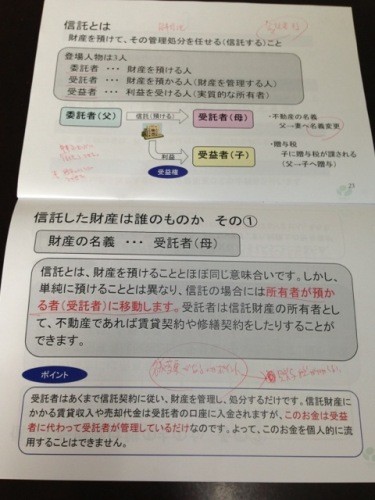 信託とは
財産を預けて、その管理処分を任せる(信託する)こと
登場人物は3人
委託者 ・・・ 財産を預ける人
受託者 ・・・ 財産を預かる人(財産を管理する人)
受益者 ・・・ 利益を受ける人(実質的な所有者)
委託者(父)
信託(預ける)
受託者(母)
・不動産の名義
父→妻へ名義変更
利益
受益者(子)
受益権
・贈与税
子に贈与税が課される
(父→子へ贈与)
信託した財産は誰のものか その①
財産の名義 ・・・ 受託者(母)
信託とは、財産を預けることとほぼ同じ意味合いです。しかし、
単純に預けることとは異なり、信託の場合には所有者が預か
る者(受託者)に移動します。受託者は信託財産の所有者とし
て、不動産であれば賃貸契約や修繕契約をしたりすることが
できます。
ポイント
受託者はあくまで信託契約に従い、財産を管理し、処分するだけです。信託財産
にかかる賃貸収入や売却代金は受託者の口座に入金されますが、このお金は受益
者に代わって受託者が管理しているだけなのです。よって、このお金を個人的に流
用することはできません。